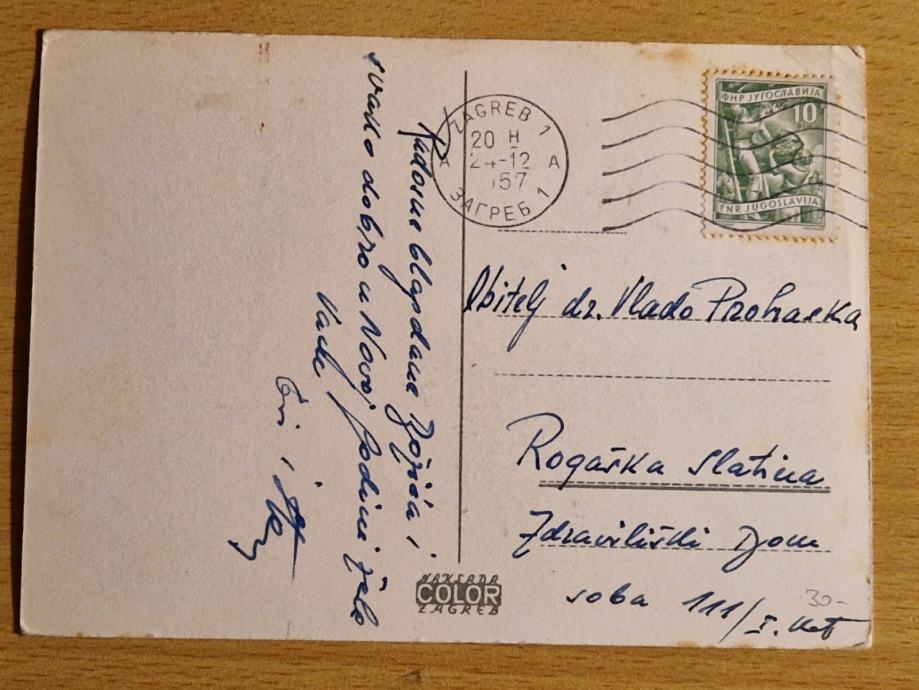 Radosne blagdane Božića i
svako dobro u Novoj godini žele
Vaši
ZAGREB 1
20 H
24-12
57
A A
ЗАГРЕБ 1
ФНР ЈУГОСЛАВИЈА
10
FNR JUGOSLAVIJA
Obitelj dr. Vlado Prohaska
Rogaška Slatina
Zdraviliški Dom
soba 111/I. kat
30-
NAKLADA
COLOR
ZAGREB